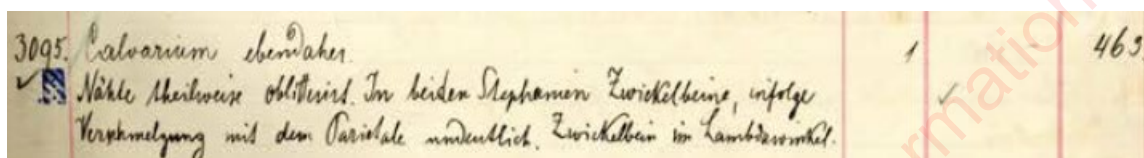 3095. Calvarium ebendaher. 1 - 463
✓ Nähte theilweise oblitterirt. In beiden Stephanien Zwickelbeine, infolge ✓
Verschmelzung mit dem Parietale undeutlich. Zwickelbein im Lambdawinkel.
rmation